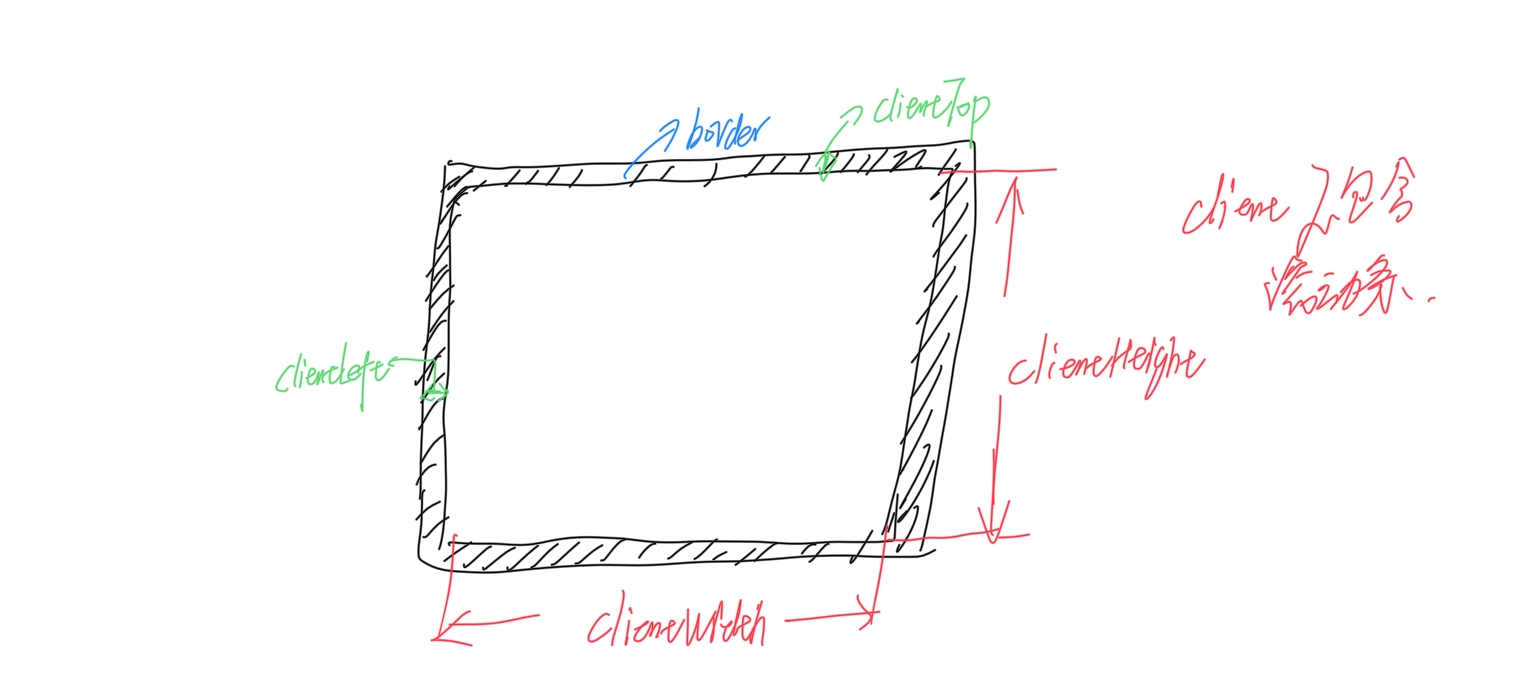 border
clientTop
client不包含
滚动条.
clientHeight
clientLeft
clientWidth